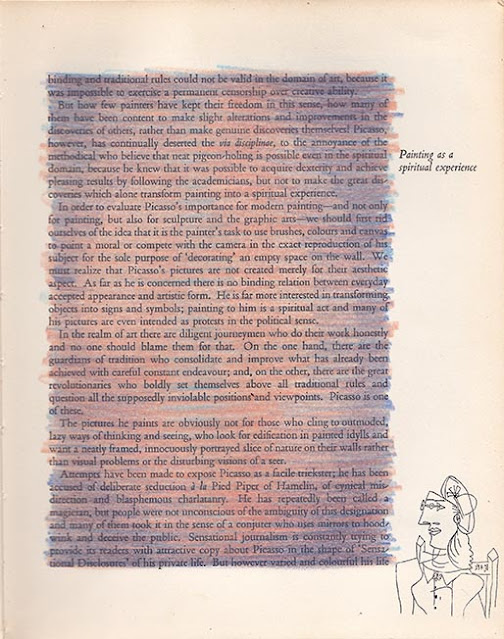 binding and traditional rules could not be valid in the domain of art, because it
was impossible to exercise a permanent censorship over creative ability.
But how few painters have kept their freedom in this sense, how many of
them have been content to make slight alterations and improvements in the
discoveries of others, rather than make genuine discoveries themselves! Picasso,
however, has continually deserted the via disciplinae, to the annoyance of the
methodical who believe that neat pigeon-holing is possible even in the spiritual
domain, because he knew that it was possible to acquire dexterity and achieve
pleasing results by following the academicians, but not to make the great dis-
coveries which alone transform painting into a spiritual experience.
In order to evaluate Picasso's importance for modern painting—and not only
for painting, but also for sculpture and the graphic arts—we should first rid
ourselves of the idea that it is the painter's task to use brushes, colours and canvas
to point a moral or compete with the camera in the exact reproduction of his
subject for the sole purpose of 'decorating' an empty space on the wall. We
must realize that Picasso's pictures are not created merely for their aesthetic
aspect. As far as he is concerned there is no binding relation between everyday
accepted appearance and artistic form. He is far more interested in transforming
objects into signs and symbols; painting to him is a spiritual act and many of
his pictures are even intended as protests in the political sense.
In the realm of art there are diligent journeymen who do their work honestly
and no one should blame them for that. On the one hand, there are the
guardians of tradition who consolidate and improve what has already been
achieved with careful constant endeavour; and, on the other, there are the great
revolutionaries who boldly set themselves above all traditional rules and
question all the supposedly inviolable positions and viewpoints. Picasso is one
of these.
The pictures he paints are obviously not for those who cling to outmoded,
lazy ways of thinking and seeing, who look for edification in painted idylls and
want a neatly framed, innocuously portrayed slice of nature on their walls rather
than visual problems or the disturbing visions of a seer.
Attempts have been made to expose Picasso as a facile trickster; he has been
accused of deliberate seduction à la Pied Piper of Hamelin, of cynical mis-
direction and blasphemous charlatanry. He has repeatedly been called a
magician, but people were not unconscious of the ambiguity of this designation
and many of them took it in the sense of a conjuter who uses mirrors to hood-
wink and deceive the public. Sensational journalism is constantly trying to
provide its readers with attractive copy about Picasso in the shape of 'Sensa-
tional Disclosures' of his private life. But however varied and colourful his life
Painting as a
spiritual experience